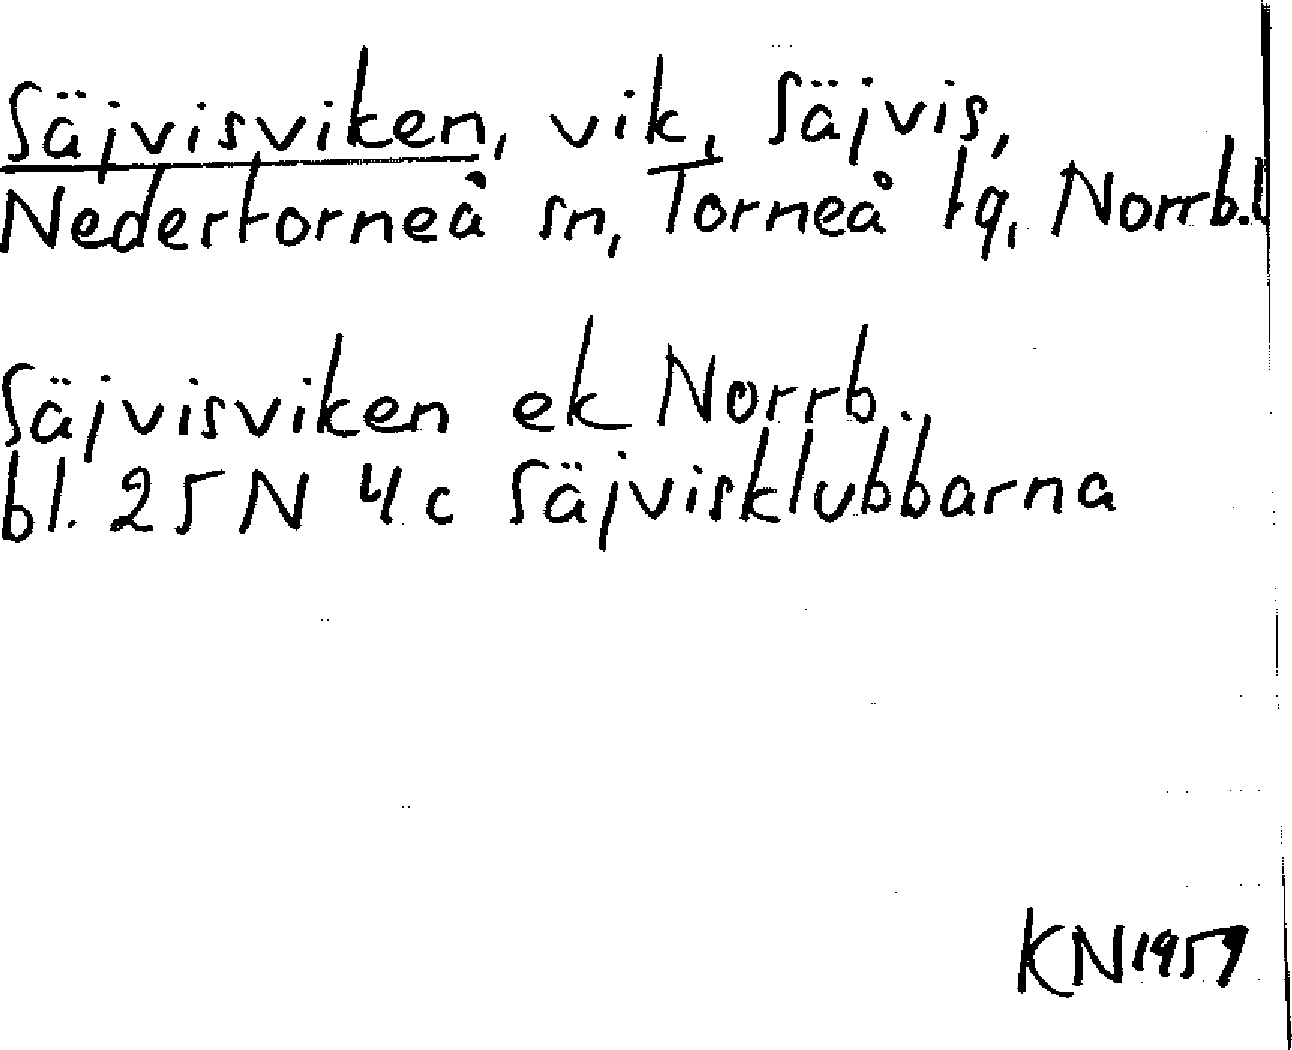 Säjvisviken, vik, Säjvis,
Nedertorneå sn, Torneå tg, Norrb.l
Säjvisviken ek Norrb.
bl. 25 N 4 c Säjvisklubbarna
KN 1959